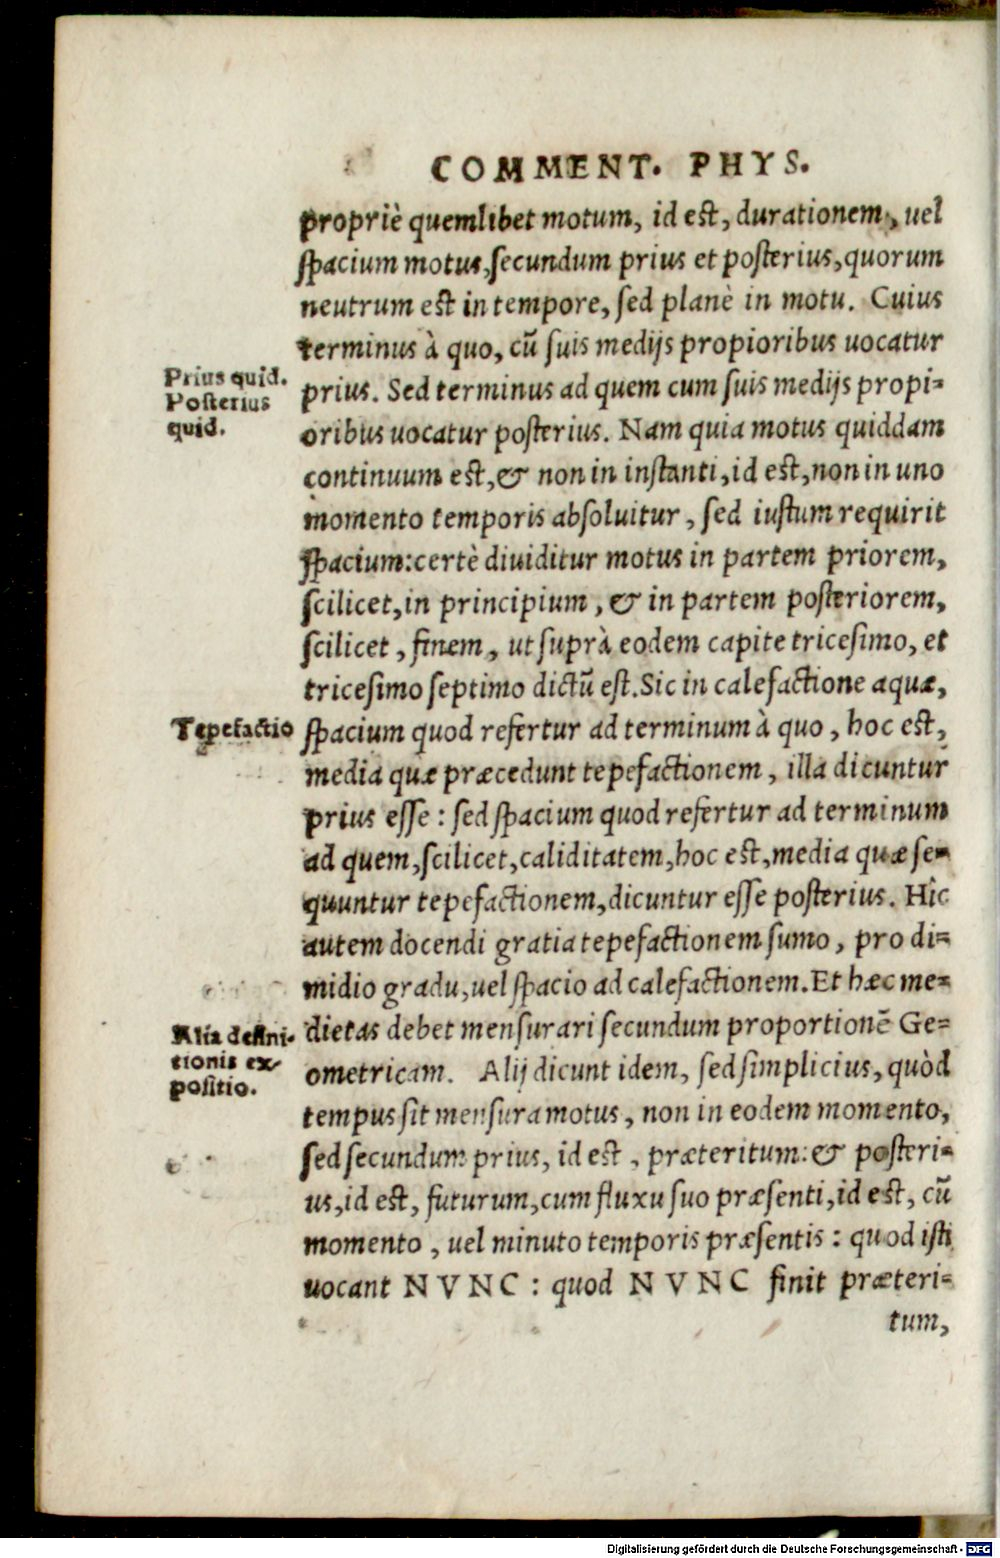 COMMENT. PHYS.
propriè quemlibet motum, id est, durationem, uel
spacium motus, secundum prius et posterius, quorum
neutrum est in tempore, sed planè in motu. Cuius
terminus à quo, cū suis medijs propioribus uocatur
Prius quid.
Posterius
quid.
prius. Sed terminus ad quem cum suis medijs propi-
oribus uocatur posterius. Nam quia motus quiddam
continuum est, & non in instanti, id est, non in uno
momento temporis absoluitur, sed iustum requirit
spacium: certè diuiditur motus in partem priorem,
scilicet, in principium, & in partem posteriorem,
scilicet, finem, ut suprà eodem capite tricesimo, et
tricesimo septimo dictū est. Sic in calefactione aquæ,
Tepefactio
spacium quod refertur ad terminum à quo, hoc est,
media quæ præcedunt tepefactionem, illa dicuntur
prius esse: sed spacium quod refertur ad terminum
ad quem, scilicet, caliditatem, hoc est, media quæ se-
quuntur tepefactionem, dicuntur esse posterius. Hîc
autem docendi gratia tepefactionem sumo, pro di-
midio gradu, uel spacio ad calefactionem. Et hæc me-
Alia defini-
tionis ex-
positio.
dietas debet mensurari secundum proportionē Ge-
ometricam. Alij dicunt idem, sed simplicius, quòd
tempus sit mensura motus, non in eodem momento,
sed secundum prius, id est, præteritum: & posteri-
us, id est, futurum, cum fluxu suo præsenti, id est, cū
momento, uel minuto temporis præsentis: quod isti
uocant NVNC: quod NVNC finit præteri-
tum,
Digitalisierung gefördert durch die Deutsche Forschungsgemeinschaft - DFG